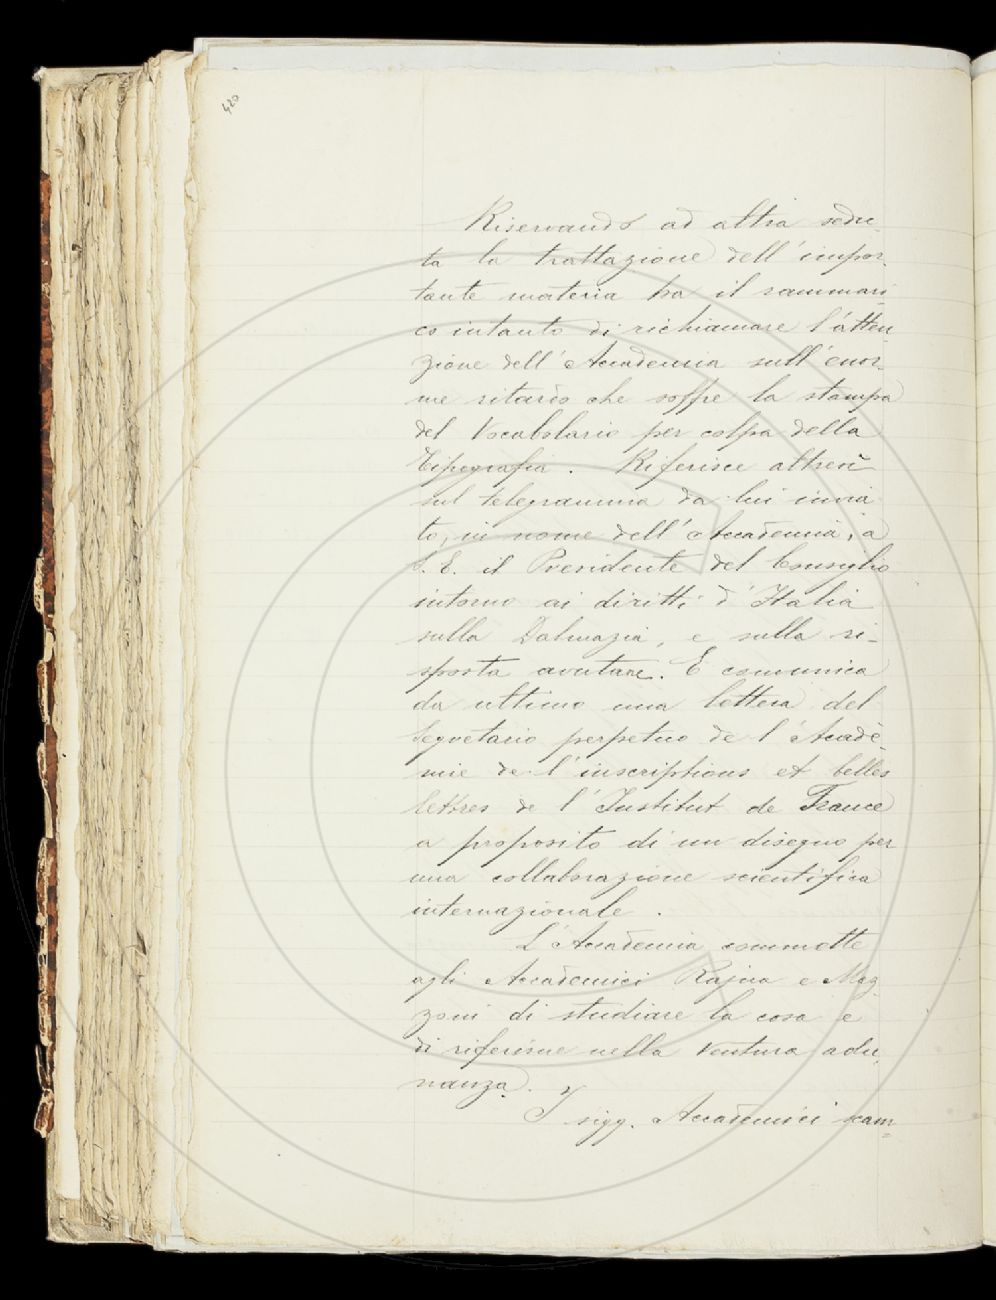 420
Riservando ad altra sedu-
ta la trattazione dell'impor-
tante materia ha il rammari-
co intanto di richiamare l'atten-
zione dell'Accademia sull'enor-
me ritardo che soffre la stampa
del Vocabolario per colpa della
Tipografia. Riferisce altresì
sul telegramma da lui invia-
to, in nome dell'Accademia, a
S. E. il Presidente del Consiglio
intorno ai diritti d'Italia
sulla Dalmazia, e sulla ri-
sposta avutane. E comunica
da ultimo una lettera del
Segretario perpetuo de l'Acadé-
mie de l'inscriptions et belles
lettres de l'Institut de France
a proposito di un disegno per
una collaborazione scientifica
internazionale.
L'Accademia commette
agli Accademici Rajna e Maz-
zoni di studiare la cosa e
di riferirne nella ventura adu-
nanza.
I sigg. Accademici scam-